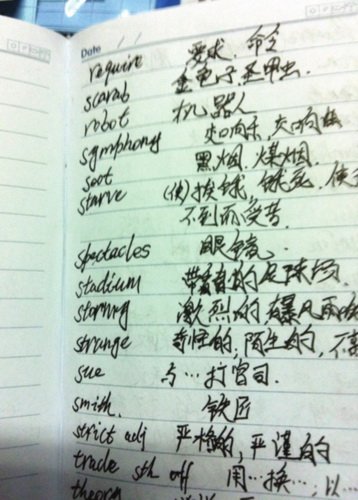 Date
require 要求，命令
scarab 金龟子，圣甲虫.
robot 机器人
symphony 交响乐，交响曲
soot 黑烟，煤烟.
starve (使)挨饿，饿死，使
不到而受苦.
spectacles 眼镜.
stadium 带看台的足球场，
stormy 激烈的 暴风雨的
strange 奇怪的，陌生的，不
sue 与…打官司.
smith. 铁匠
strict adj 严格的，严谨的
trade sth off 用…换…以
theory